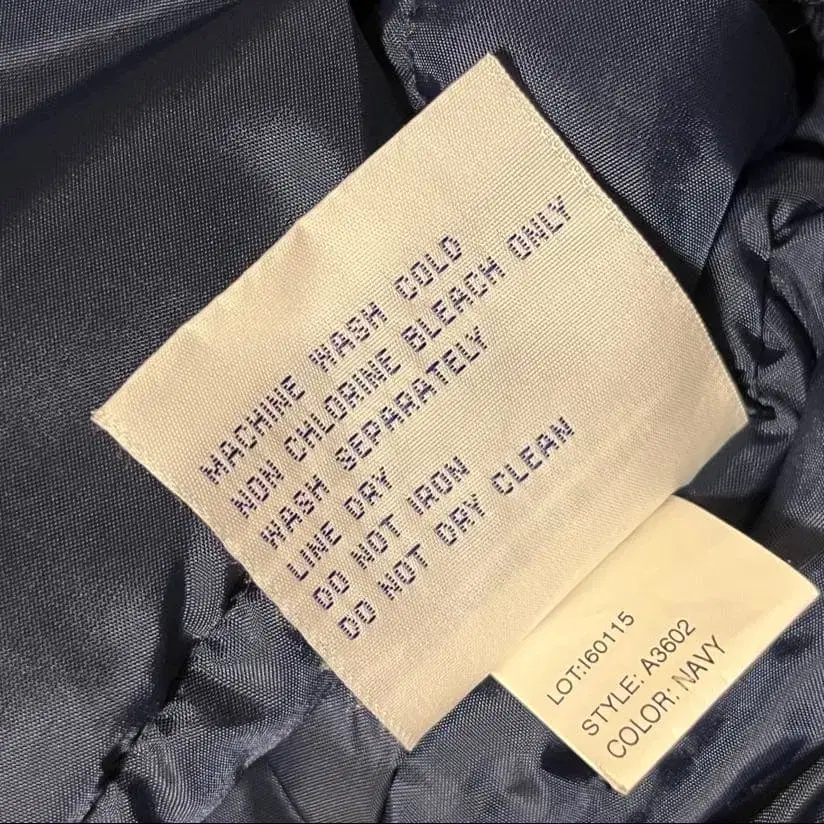 MACHINE WASH COLD
NON CHLORINE BLEACH ONLY
WASH SEPARATELY
LINE DRY
DO NOT IRON
DO NOT DRY CLEAN
LOT:I60115
STYLE: A3602
COLOR: NAVY